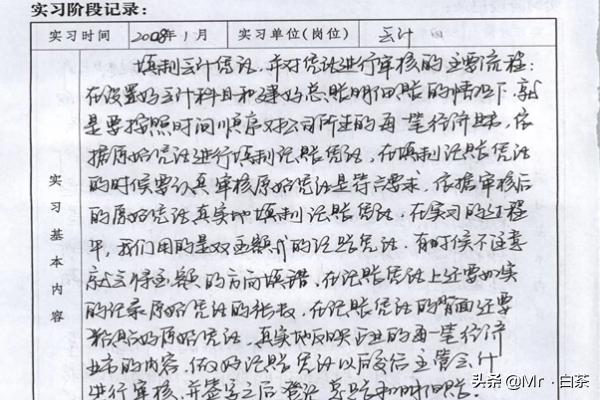 实习阶段记录:
实习时间 2008年1月 实习单位(岗位) 会计
实习基本内容
填制会计凭证,并对凭证进行审核的主要流程:
在设置好会计科目和建好总账明细账的情况下,就
是要按照时间顺序对公司所发生的每一笔经济业务,依
据原始凭证进行填制记账凭证,在填制记账凭证
的时候要认真审核原始凭证是否符合要求,依据审核后
的原始凭证真实地填制记账凭证,在实习的过程
中,我们用的是双金额式的记账凭证,有时候不注意
就会将金额的方向填错,在记账凭证上还要如实
的记录原始凭证的张数,在记账凭证的背面还要
粘贴好原始凭证,真实地反映企业的每一笔经济
业务的内容,做好记账凭证以后交给主管会计
进行审核,并签字之后登记总账和明细账。
头条 @Mr·白茶